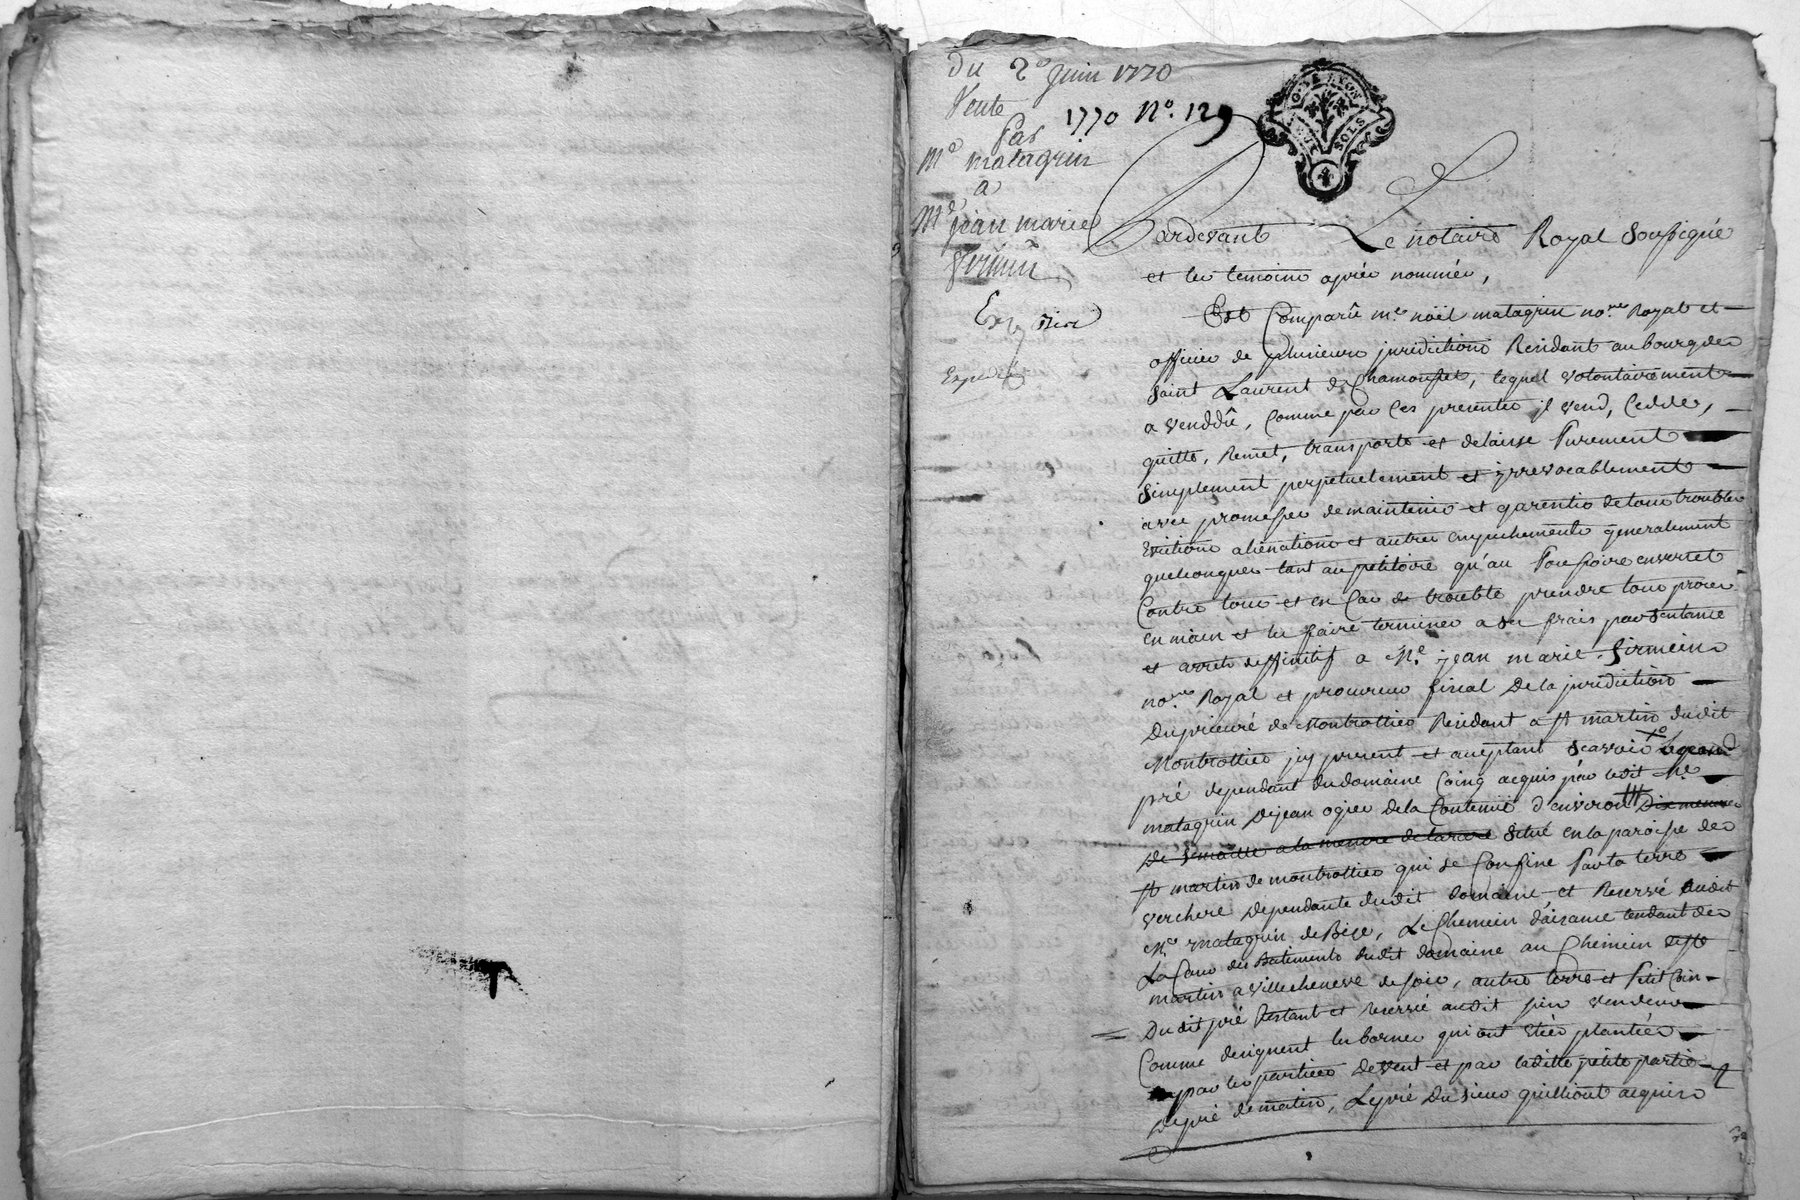 Du 2e Juin 1770
Vente
1770 No. 129
Par
Me matagrin
a
Me jean marie
firmin
Expedié
G. DE LYON
SOLS
Pardevant Le notaire Royal soussigné
et les temoins aprés nommés,
Est Comparû me noël matagrin nore Royal et
officier de plusieurs jurisdictions Residant au bourg de
Saint Laurent de Chamousset, lequel volontairement
a venddû, Comme par Ces presentes il vend, Cedde,
quitte, Remet, transporte et delaisse Purement
Simplement perpetuelement et yrrevocablement
avec promesses de maintenir et garentir de tous troubles
Evitions alienations et autres empechements generalement
quelconques tant au petitoire qu'au Possessoire envers et
Contre tous et en Cas de trouble prendre tous proces
en main et les faire terminer a ses frais par Sentance
et arrets deffinitif a Me jean marie firmin
nore Royal et procureur fiscal De la jurisdiction
Du prieuré de Montrottier Residant a st martin dudit
Montrottier icy present et aceptant Scavoir
pré dependant du domaine Coing acquis par ledit Me
matagrin De jean ogier de la Contenüe d'environ Dix mesures
De Semaille a la mesure de larare Situé en la paroisse de
st martin de montrottier qui se Confine Par la terre
verchere Dependante dudit domaine et Reservé audit
Me matagrin de Bize, Le Chemin d'aisance tendant de
La Cour des Batiments dudit domaine au Chemin de st
martin a villecheneve de soir, autre terre et Petit Coin
Dudit pré Restant et Reservé audit sieur vendeur
Comme designent les bornes qui ont etées plantées
par les parties De vent et par laditte petite partie
De pré de matin, Le pré Du sieur quilliout acquis